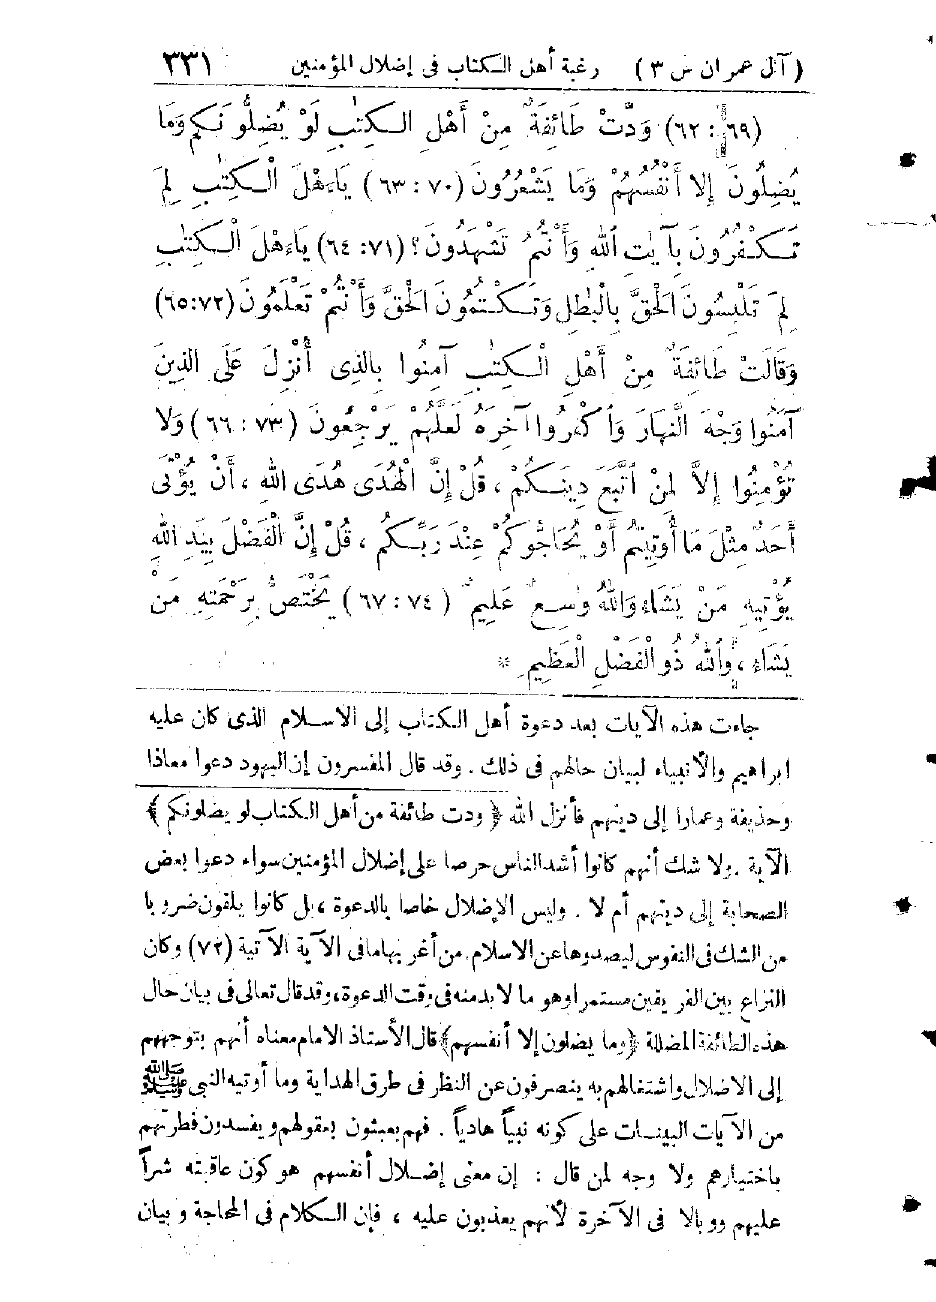 ( آل عمران س ٣ ) رغبة أهل الكتاب فى إضلال المؤمنين ٣٣١
(٦٩ : ٦٢) وَدَّتْ طَائِفَةٌ مِنْ أَهْلِ الْكِتٰبِ لَوْ يُضِلُّونَكُمْ وَمَا
يُضِلُّونَ إِلا أَنْفُسَهُمْ وَمَا يَشْعُرُونَ (٧٠ : ٦٣) يَاءَهْلَ الْكِتٰبِ لِمَ
تَكْفُرُونَ بِآيٰتِ اللهِ وَأَنْتُمْ تَشْهَدُونَ؟ (٧١ : ٦٤) يَاءَهْلَ الْكِتٰبِ
لِمَ تَلْبِسُونَ الْحَقَّ بِالْبٰطِلِ وَتَكْتُمُونَ الْحَقَّ وَأَنْتُمْ تَعْلَمُونَ (٧٢:٦٥)
وَقَالَتْ طَائِفَةٌ مِنْ أَهْلِ الْكِتٰبِ آمِنُوا بِالَّذِى أُنْزِلَ عَلَى الَّذِينَ
آمَنُوا وَجْهَ النَّهَارِ وَاكْفُرُوا آخِرَهُ لَعَلَّهُمْ يَرْجِعُونَ (٧٣ : ٦٦) وَلا
تُؤْمِنُوا إِلاَّ لِمَنْ اتَّبَعَ دِينَكُمْ ، قُلْ إِنَّ الْهُدَى هُدَى اللهِ ، أَنْ يُؤْتَى
أَحَدٌ مِثْلَ مَا أُوتِيتُمْ أَوْ يُحَاجُّوكُمْ عِنْدَ رَبِّكُمْ ، قُلْ إِنَّ الْفَضْلَ بِيَدِ اللهِ
يُؤْتِيهِ مَنْ يَشَاءُ وَاللهُ وٰسِعٌ عَلِيمٌ ( ٧٤ : ٦٧ ) يَخْتَصُّ بِرَحْمَتِهِ مَنْ
يَشَاءُ ، وَاللهُ ذُو الْفَضْلِ الْعَظِيمِ *
جاءت هذه الآيات بعد دعوة أهل الكتاب إلى الاسلام الذى كان عليه
ابراهيم والأنبياء لبيان حالهم فى ذلك . وقد قال المفسرون إن اليهود دعوا معاذا
وحذيفة وعمارا إلى دينهم فأنزل الله ﴿ ودت طائفة من أهل الكتاب لو يضلونكم ﴾
الآية . ولا شك أنهم كانوا أشد الناس حرصا على إضلال المؤمنين سواء دعوا بعض
الصحابة إلى دينهم أم لا . وليس الإضلال خاصا بالدعوة ، بل كانوا يلقون ضروبا
من الشك فى النفوس ليصدوها عن الاسلام . من أغربها ما فى الآية الآتية (٧٢) وكان
النزاع بين الفريقين مستمرا وهو ما لا بد منه فى وقت الدعوة ، وقد قال تعالى فى بيان حال
هذه الطائفة المضللة ﴿وما يضلون إلا أنفسهم﴾ قال الأستاذ الامام معناه أنهم بتوجههم
إلى الاضلال واشتغالهم به ينصرفون عن النظر فى طرق الهداية وما أوتيه النبى ﷺ
من الآيات البينات على كونه نبياً هادياً . فهم يعبثون بعقولهم ويفسدون فطرتهم
باختيارهم ولا وجه لمن قال : إن معنى إضلال أنفسهم هو كون عاقبته شراً
عليهم ووبالا فى الآخرة لأنهم يعذبون عليه ، فإن الكلام فى المحاجة وبيان